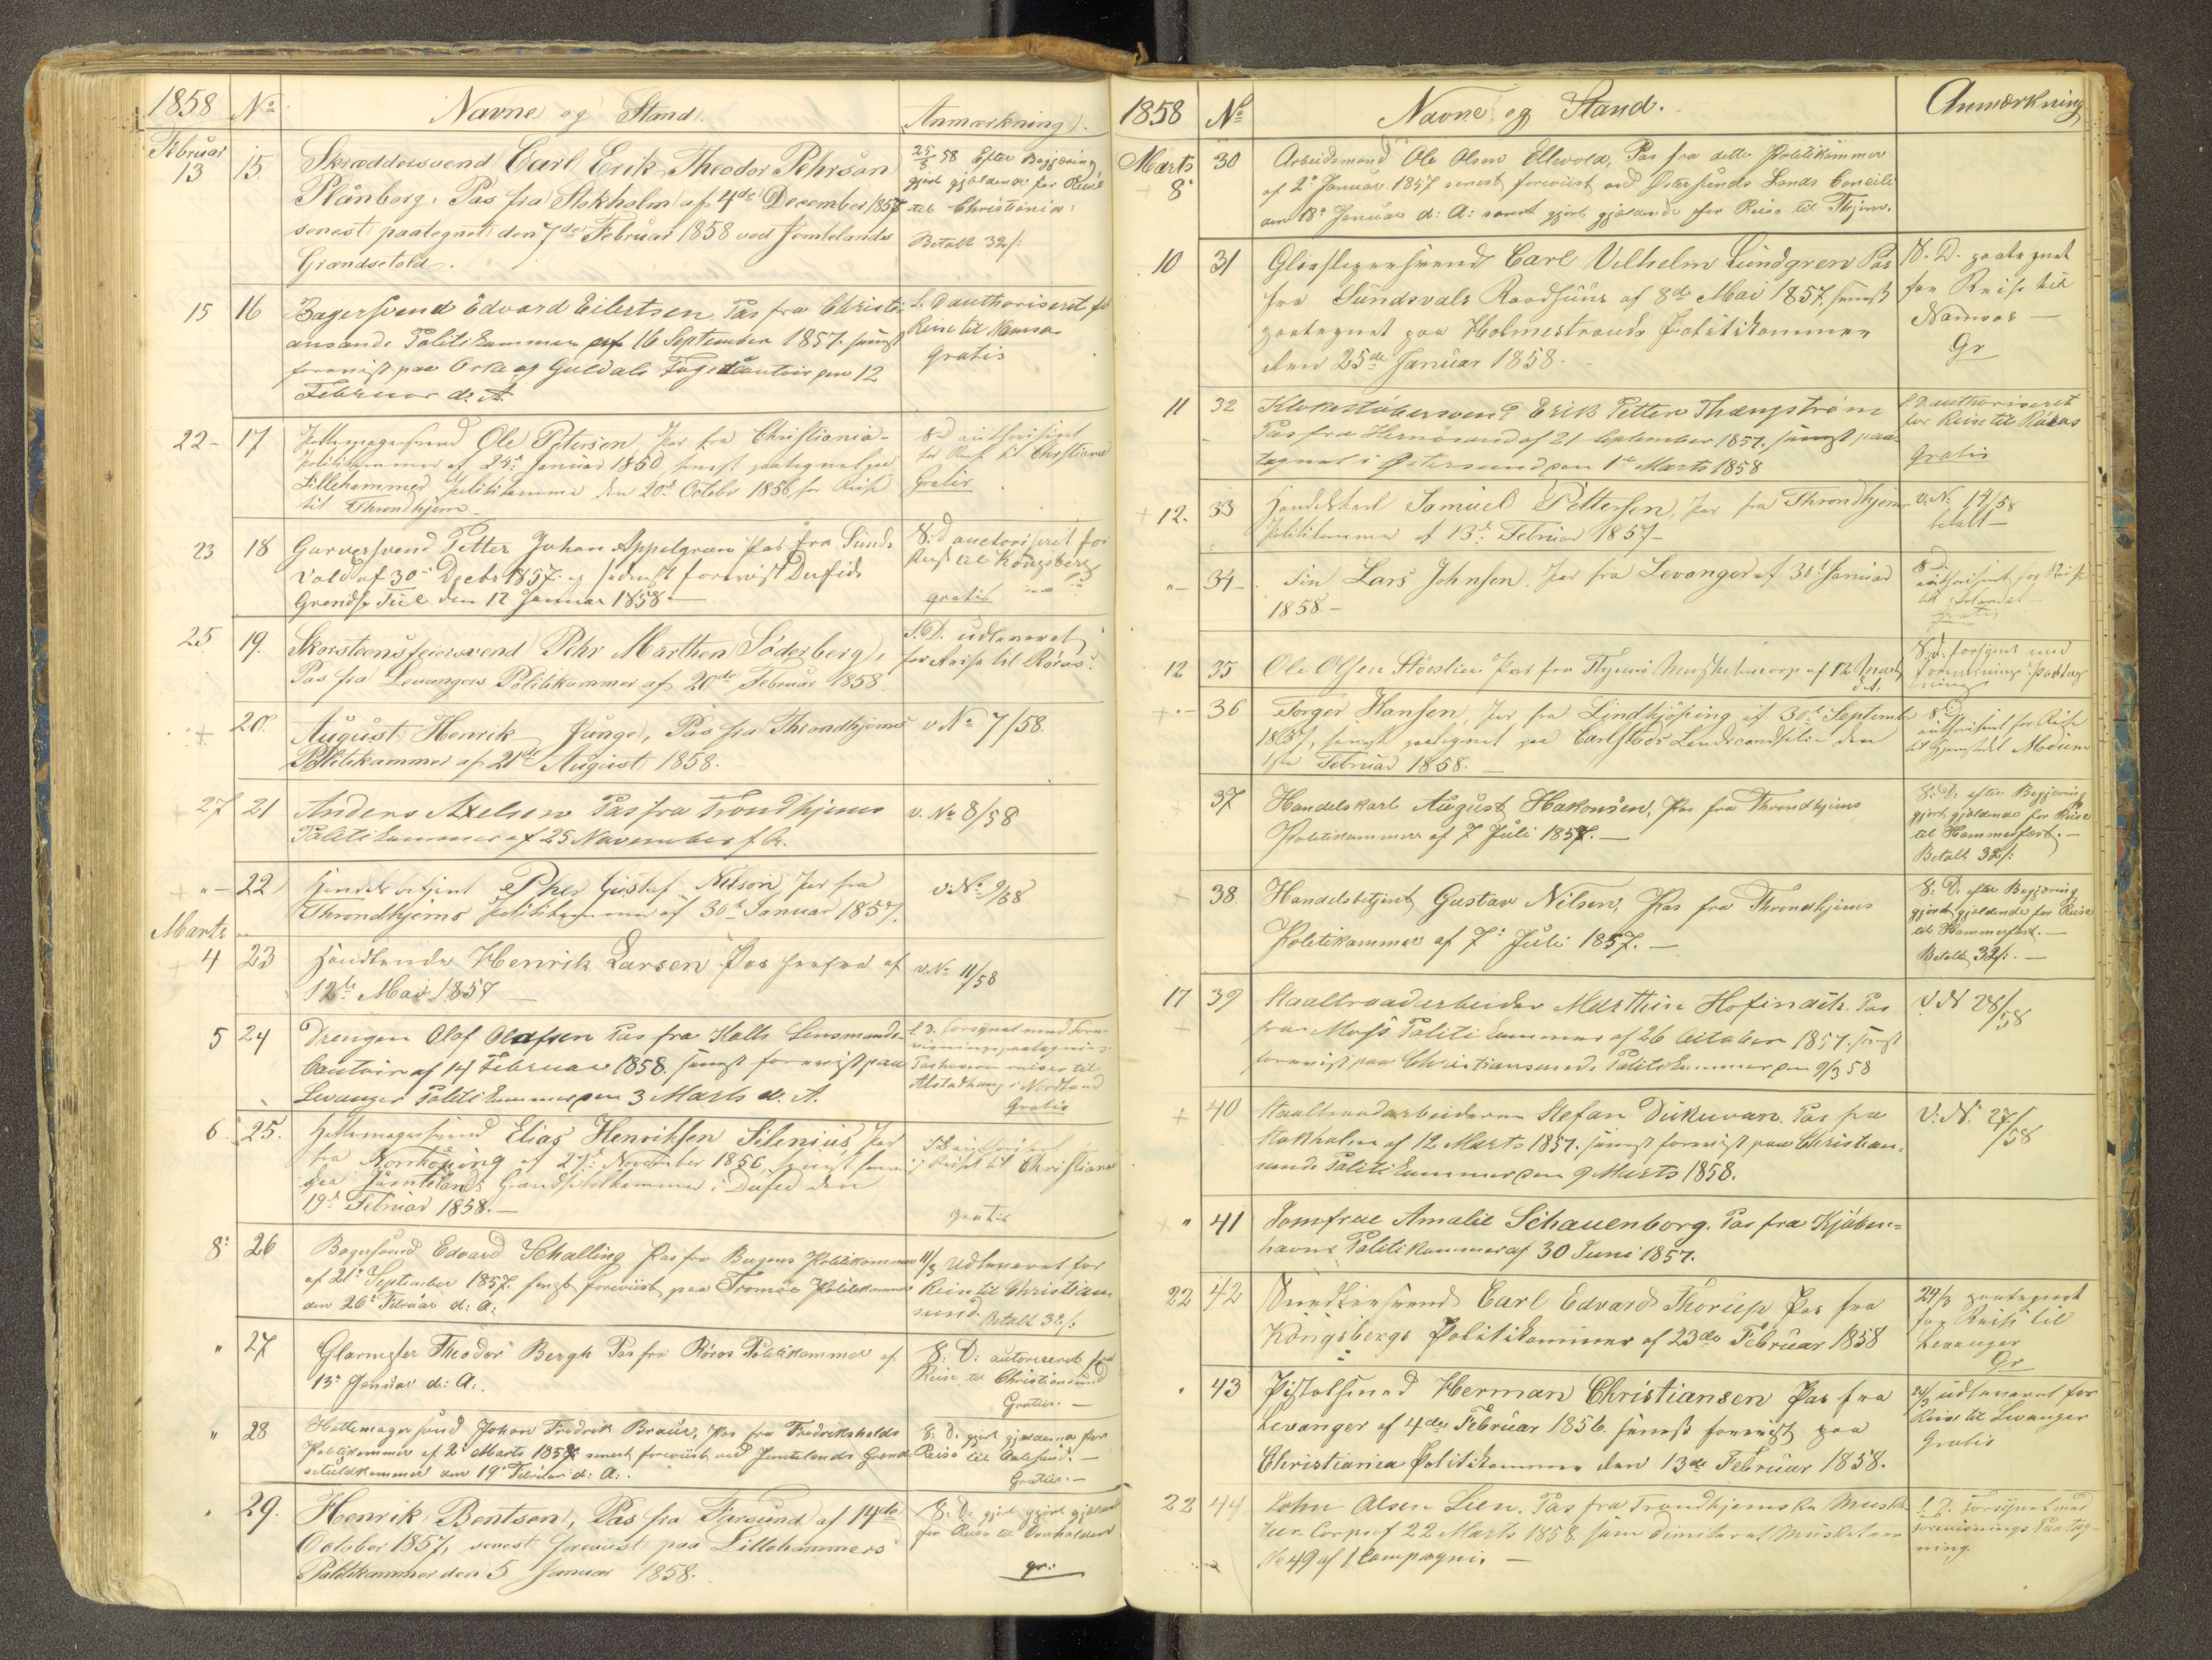 1858 No Navne og Stand. Anmærkning.
Februar
13 15. Skræddersvend Carl Erik Theodor Pehrson
Plånborg. Pas fra Stokholm af 4de December 1857
senest paategnet den 7de Februar 1858 ved Jemtelands
Grændsetold.
25/3 58 Efter Begjæring
gjort gjældende for Reise
til Christiania.
Betalt 32 /:
15 16 Bagersvend Edvard Eilertsen, Pas fra Christi-
ansands Politikammer af 16 September 1857. senest
forevist paa Orke og Guldals Fogedcontoir den 12
Februar d. A.
S. D authoriseret for
Reise til Namsos
gratis
22- 17 Pottemagersvend Ole Petersen, Pas fra Christiania-
Politikammer af 24de Januar 1850, senest paategnet paa
Lillehammer Politikammer den 20de October 1856 for Reise
til Throndhjem-
S. D authoriseret
for Reise til Christiania
Gratis
23 18 Garversvend Petter Johan Appelgreen Pas fra Sunds
vald af 30 Decbr 1857 og senest forevist Dufeds
Grendse Tul den 12 Januar 1858-
S. D auctoriseret for
Reise til Kongsberg
gratis
25 19. Skorsteensfeiersvend Pehr Marthen Söderberg,
Pas fra Levangers Politikammer af 20de Februar 1858.
S. D. udleveret
for Reise til Röraas.
20. August Henrik Junge, Pas fra Throndhjems
Politikammer af 21de August 1858.
v No 7/58.
27 21 Anders Axelsen Pas fra Trondhjems
Politikammer af 25 November f. A.
v. No 8/58
"- 22 Handelsbetjent Pher Gustaf Nilson, Pas fra
Throndhjems Politikammer af 30te Januar 1857.
v. No 9/58
Marts
4 23 Handlende Henrik Larsen Pas herfra af
12te Mai 1857 -
v. No 11/58
5 24 Drengen Olaf Olafsen Pas fra Kalls Lensmands-
Contoir af 14 Februar 1858. senest forevist paa
Levanger Politikammer den 3 Marts d. A.
S. D. forsynet med Fore-
visningspaategning.
Pashaveren reiser til
Alstadhaug i Nordland
Gratis
6. 25. Hattemagersvend Elias Henriksen Silenius, Pas
fra Norrköping af 27de November 1856, senest forevist
paa Jämtelands Grændsetolkammer i Dufed den
19de Februar 1858.-
S. D authoriseret
for Reise til Christiania
gratis
8: 26 Bagersvend Edvard Schalling Pas fra Bergens Politikammer
af 21: September 1857. senest foreviist paa Tromsö Politikammer
den 26: Februar d: A:
11/3 Udleveret for
Reise til Christian-
sund. Betalt 32 /:
" 27 Glarmester Theodor Bergh Pas fra Röros Politikammer af
13: Januar d: A:.
S: D: autoriseret for
Reise til Christiansund
Gratis.-
" 28 Hattemagersvend Johan Fredrik Braüer, Pas fra Fredrikshalds
Politikammer af 2: Marts 1857. senest foreviist ved Jemtelands Grænd-
setuldkammer den 19: Februar d: A:.
S: D. gjort gjældende for
Reise til Aalesund.-
Gratis.-
" 29. Henrik Bentsen, Pas fra Farsund af 14de
October 1857, senest foreviist paa Lillehammers
Politikammer den 5 Januar 1858.
S: D: gjort gjældende
for Reise til
gr:
1858 No Navne og Stand. Anmærkning
Marts
8: 30 Arbeidsmand Ole Olsen Ellevold, Pas fra dette Politikammer
af 2: Januar 1857 senest foreviist ved Östersunds Lands Cancelli
den 18: Januar d: A: samt gjort gjældende for Reise til Thjem.
10 31 Glassliepersvend Carl Vilhelm Lundgren Pas
fra Sundsvals Raadhuus af 8de Mai 1857, senest
paategnet paa Holmestrands Politikammer
den 25de Januar 1858.
S. D. paategnet
for Reise til
Namsos -
Gr
11 32 Klokestöbersvend Erik Petter Thængström
Pas fra Hernösand af 21 September 1857, senest paa-
tegnet i Östersund den 1te Marts 1858
S D authoriseret
for Reise til Röraas
Gratis
12. 33 Handelskarl Samuel Pettersen, Pas fra Throndhjems
Politikammer af 13de Februar 1857-
v. No 14/58
betalt-
"- 34- Fin Lars Johnsen. Pas fra Levanger af 30te Januar
1858-
S. D.
authoriseret for Reise
gratis
12 35 Ole Olsen Störslien Pas fra Thjems Musketeercorps af 12 Marts
d. A.
S. D. forsynet med
forevisnings Paateg
ning
"- 36 Torger Hansen, Pas fra Lindkjöping af 30te Septembr
1857, senest paategnet paa Carlstads Landscancelie den
1ste Februar 1858.-
S. D.
authoriseret for Reise
til Hjemstedet Modum
37 Handelskarl August Hakonsen, Pas fra Throndhjems
Politikammer af 7 Juli 1857.-
S: D. efter Begjæring
gjort gjældende for Reise
til Hammerfest.-
Betalt 32 /:
38. Handelsbetjent Gustav Nilsen, Pas fra Throndhjems
Politikammer af 7: Juli 1857.-
S: D. efter Begjæring
gjort gjældende for Reise
til Hammerfest.-
Betalt 32 /:.-
17 39 Staaltraadarbeider Marthin Hofinach. Pas
fra Moss Politikammer af 26 October 1857. senest
forevist paa Christiansunds Politikammer den 9/3 58
V. N 28/58
40 Staaltraadarbeideren Stefan Dukuvan. Pas fra
Stokholm af 12 Marts 1857. senest forevist paa Christian-
sunds Politikammer den 9 Marts 1858.
V. N. 27/58
" 41 Jomfrue Amalie Schauenborg. Pas fra Kjöben-
havns Politikammer af 30 Juni 1857.
22 42 Snedkersvend Carl Edvard Thorup Pas fra
Kongsbergs Politikammer af 23de Februar 1858
24/3 paategnet
for Reise til
Levanger
Gr
" 43 Herman Christiansen Pas fra
Levanger af 4de Februar 1856. senest forevist paa
Christiania Politikammer den 13de Februar 1858.
24/3 udleveret for
Reise til Levanger
Gratis
22 44 John Olsen Lien. Pas fra Trondhjemske Muske
teer Corps af 22 Marts 1858. som dimiteret Musketeer
No 49 af 1 Compagni.-
S. D. Forsynet med
Forevisnings Paateg-
ning.